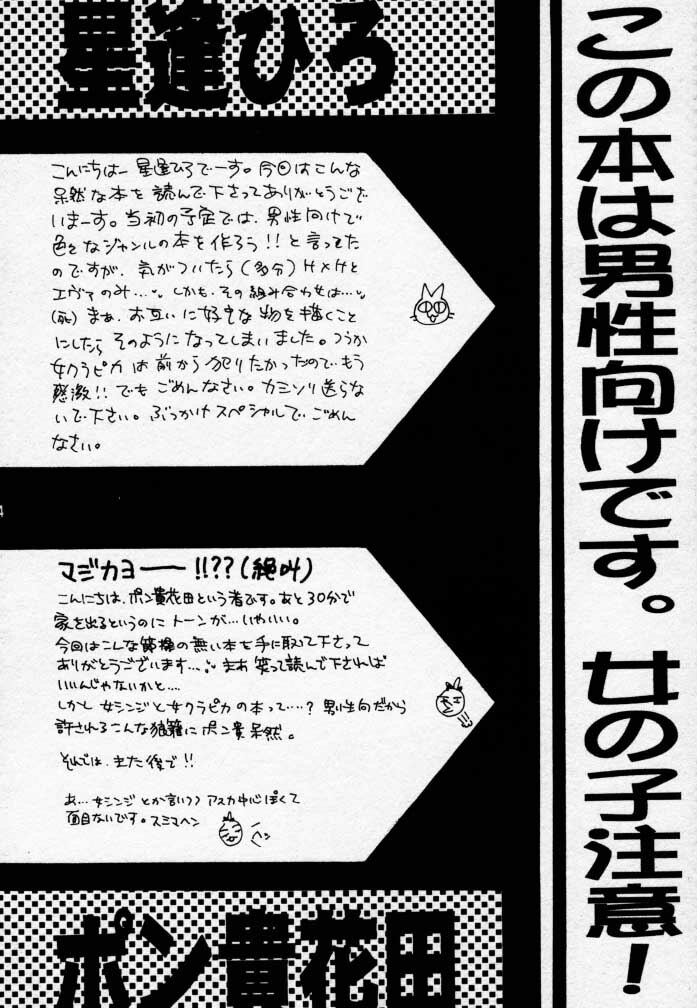 この本は男性向けです。女の子注意!
星逢ひろ
こんにちはー 星逢ひろでーす。今回はこんな
呆然な本を読んで下さってありがとうござ
いまーす。当初の予定では、男性向けで
色々なジャンルの本を作ろう!!と言ってた
のですが、気がついたら(多分)H×Hと
エヴァのみ…。しかも、その組み合わせは…。
(死) まぁ、お互いに好きな物を描くこと
にしたら そのようになってしまいました。つうか
女クラピカ は前から犯りたかったので、もう
感激!! でも ごめんなさい。カミソリ送らな
いで下さい。ぶっかけスペシャルで ごめん
なさい。
4
マジカヨーー!!??(絶叫)
こんにちは、ポン貴花田という者です。あと30分で
家を出るというのに トーンが…いやいい。
今回はこんな節操の無い本を手に取って下さって
ありがとうございます… まぁ 笑って読んで下されば
いいんじゃないかと…
しかし 女シンジと女クラピカ の本って…? 男性向だから
許されるこんな狼藉に ポン貴 呆然。
それでは、また後で!!
あ… 女シンジ とか言いつつ アスカ中心ぽくて
面目ないです。スミマヘン
ヘン
ポン貴花田